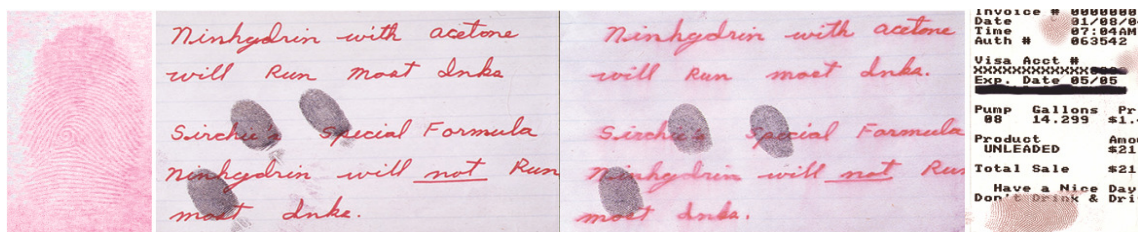 Ninhydrin with acetone
will Run most Inks
Sirchie's Special Formula
Ninhydrin will not Run
most Inks.
Ninhydrin with acetone
will Run most Inks.
Sirchie's Special Formula
Ninhydrin will not Run
most Inks.
Invoice # 0000000
Date 01/08/0
Time 07:04AM
Auth # 063542
Visa Acct #
Exp. Date 05/05
Pump Gallons Pr
08 14.299 $1.
Product Amo
UNLEADED $21
Total Sale $21
Have a Nice Day
Don't Drink & Dri